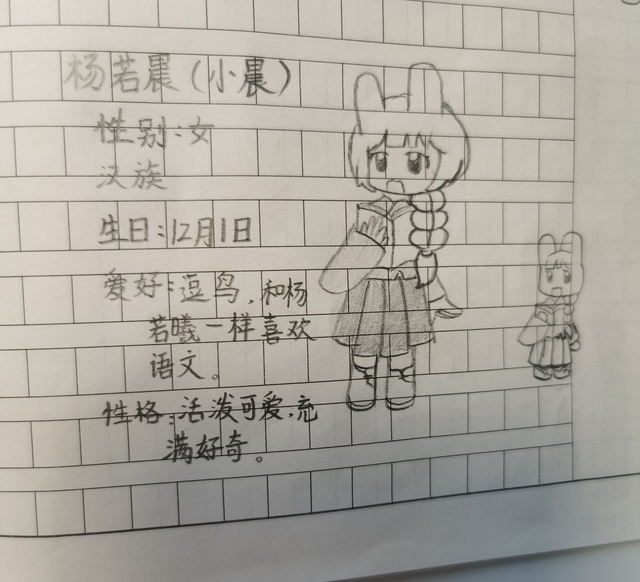 杨若晨（小晨）
性别：女
汉族
生日：12月1日
爱好：逗鸟，和杨
若曦一样喜欢
语文。
性格：活泼可爱，充
满好奇。